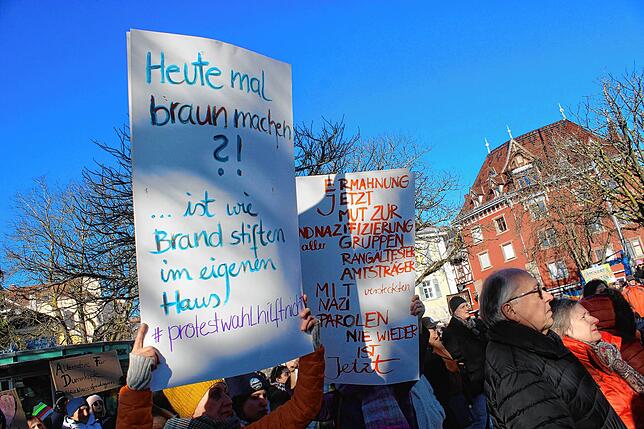 Heute mal
braun machen
?!
... ist wie
Brand stiften
im eigenen
Haus!
#protestwahlhilftnicht
ERMAHNUNG
JETZT
MUT ZUR
IFIZIERUNG
alle GRUPPEN
RANGÄLTESTER
AMTSTRÄGER
MIT versteckten
NAZI
PAROLEN
NIE WIEDER
IST
Jetzt